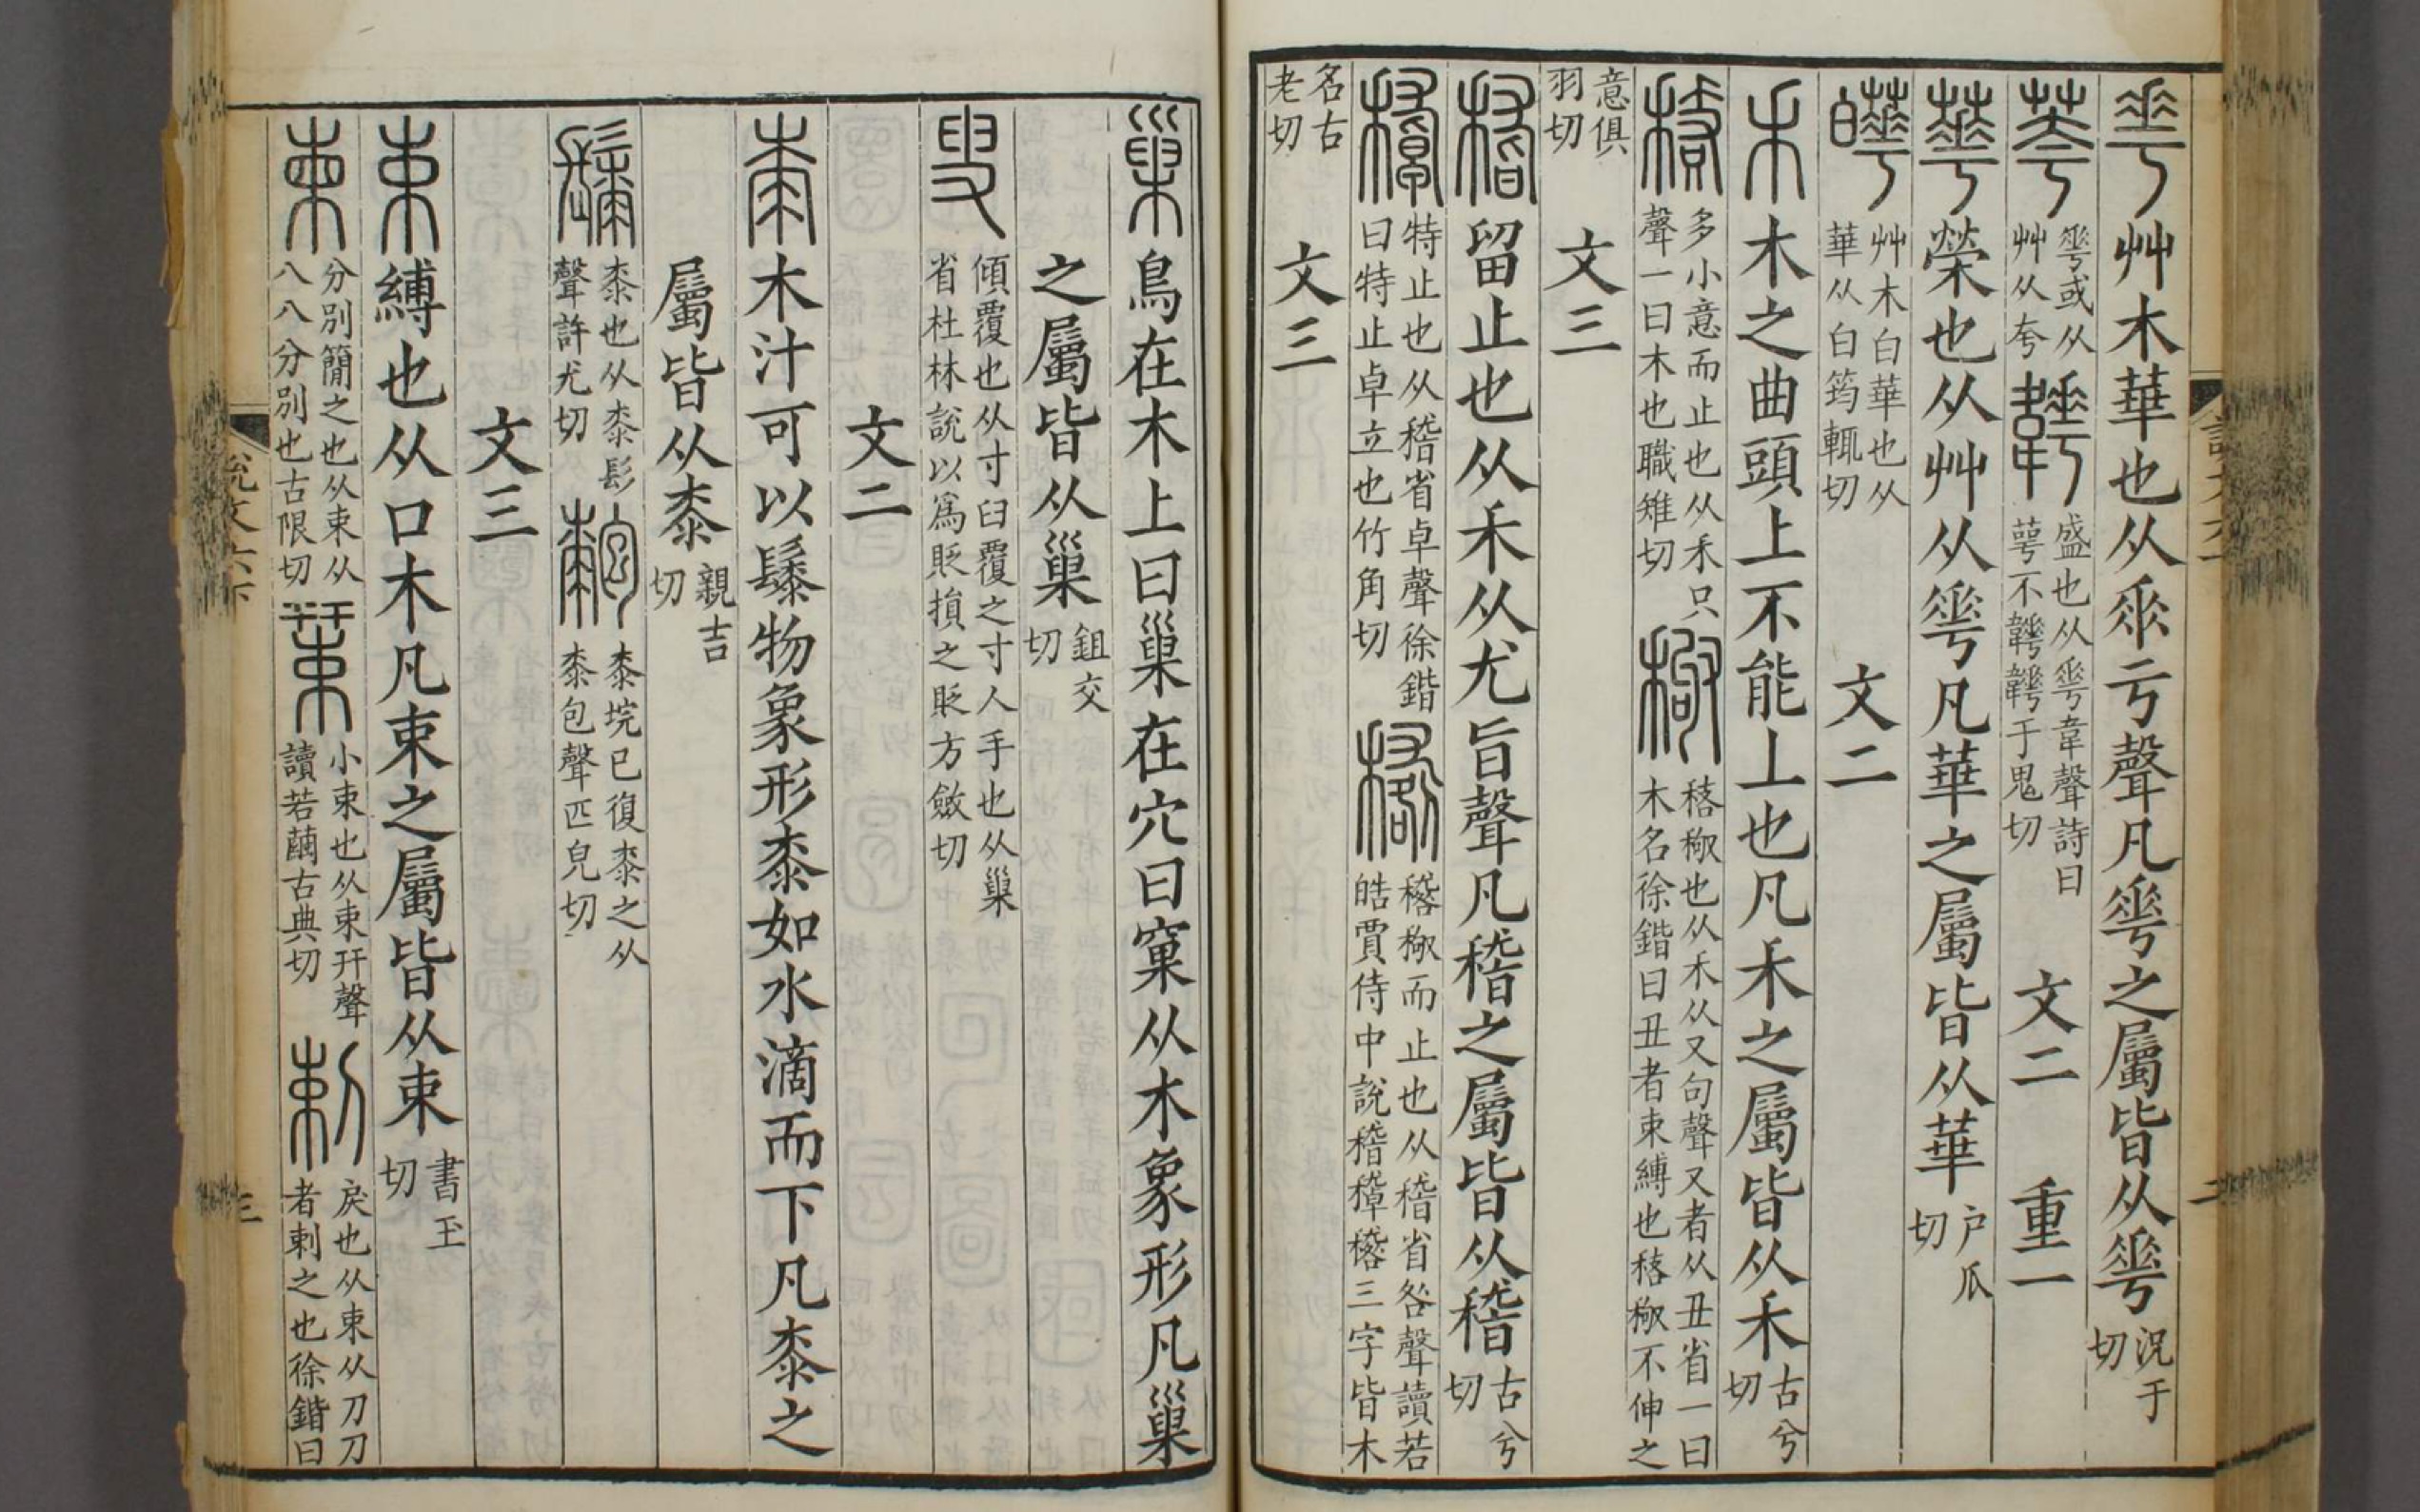 𠌶艸木華也从𠂹亏聲凡𠌶之屬皆从𠌶況于切
荂𠌶或从艸从夸
䪮盛也从𠌶韋聲詩曰萼不䪮䪮于鬼切 文二 重一
華榮也从艸从𠌶凡華之屬皆从華戶瓜切
皣艸木白華也从華从白筠輒切 文二
𥝌木之曲頭上不能上也凡𥝌之屬皆从𥝌古兮切
𥠻多小意而止也从𥝌只聲一曰木也職雉切
𥡴𥠻也从𥝌从又句聲又者从丑省一曰木名徐鍇曰丑者束縛也𥠻𥡴不伸之
意俱羽切 文三
稽留止也从𥝌从尤旨聲凡稽之屬皆从稽古兮切
𥡲特止也从稽省卓聲徐鍇曰特止卓立也竹角切
𥢔𥠻𥡴而止也从稽省咎聲讀若皓賈侍中說稽𥡲𥢔三字皆木
名古老切 文三
巢鳥在木上曰巢在穴曰窠从木象形凡巢
之屬皆从巢鉏交切
𠬛傾覆也从寸臼覆之寸人手也从巢省杜林說以為貶損之貶方斂切
文二
桼木汁可以䰍物象形桼如水滴而下凡桼之
屬皆从桼親吉切
䰍桼也从桼髟聲許尤切
𣠺桼垸已復桼之从桼包聲匹皃切
文三
束縛也从口木凡束之屬皆从束書玉切
柬分別簡之也从束从八八分別也古限切
𣗥小束也从束幵聲讀若繭古典切
剌戾也从束从刀刀者剌之也徐鍇曰